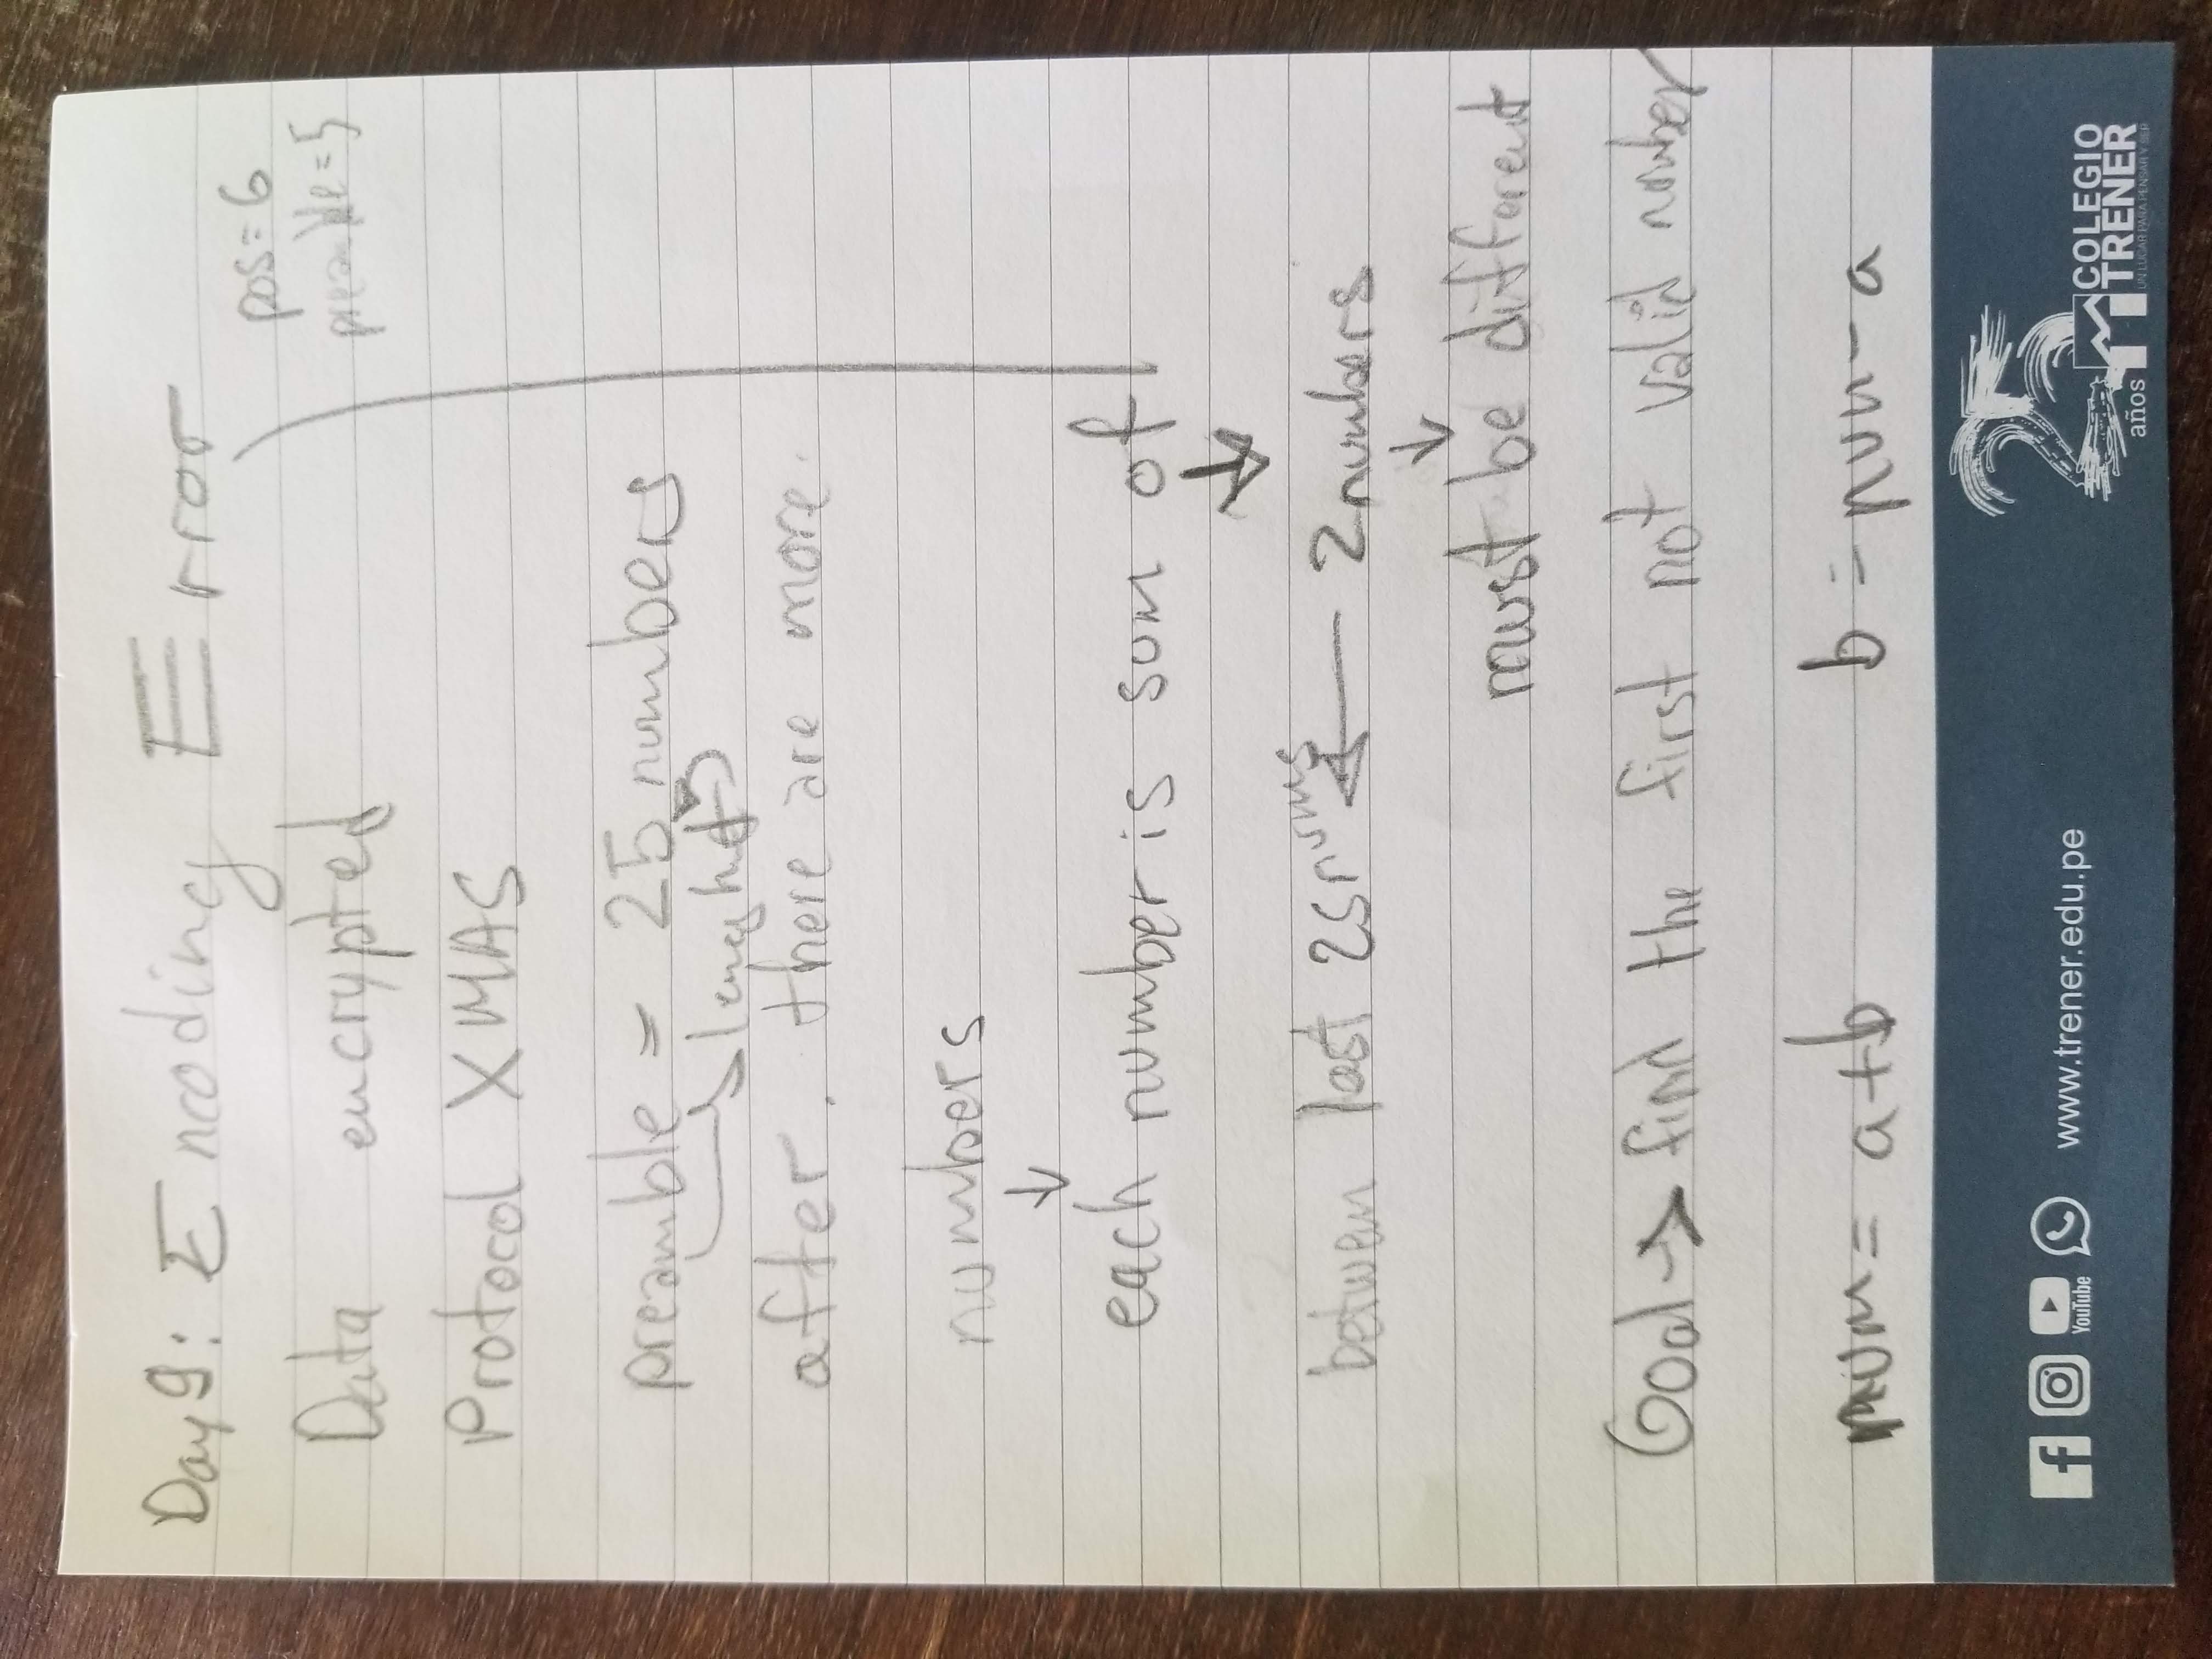 Day 9: Encoding Error
pos=6
preamble=5
Data encrypted
Protocol XMAS
preamble = 25 numbers
lenght
after. there are more.
numbers
↓
each number is sum of
↓
betwen last 25 nums ← 2 numbers
↓
must be different
Goal → find the first not valid number
num = a+b b = num - a
YouTube
www.trener.edu.pe
25
años
COLEGIO
TRENER
UN LUGAR PARA PENSAR Y SER